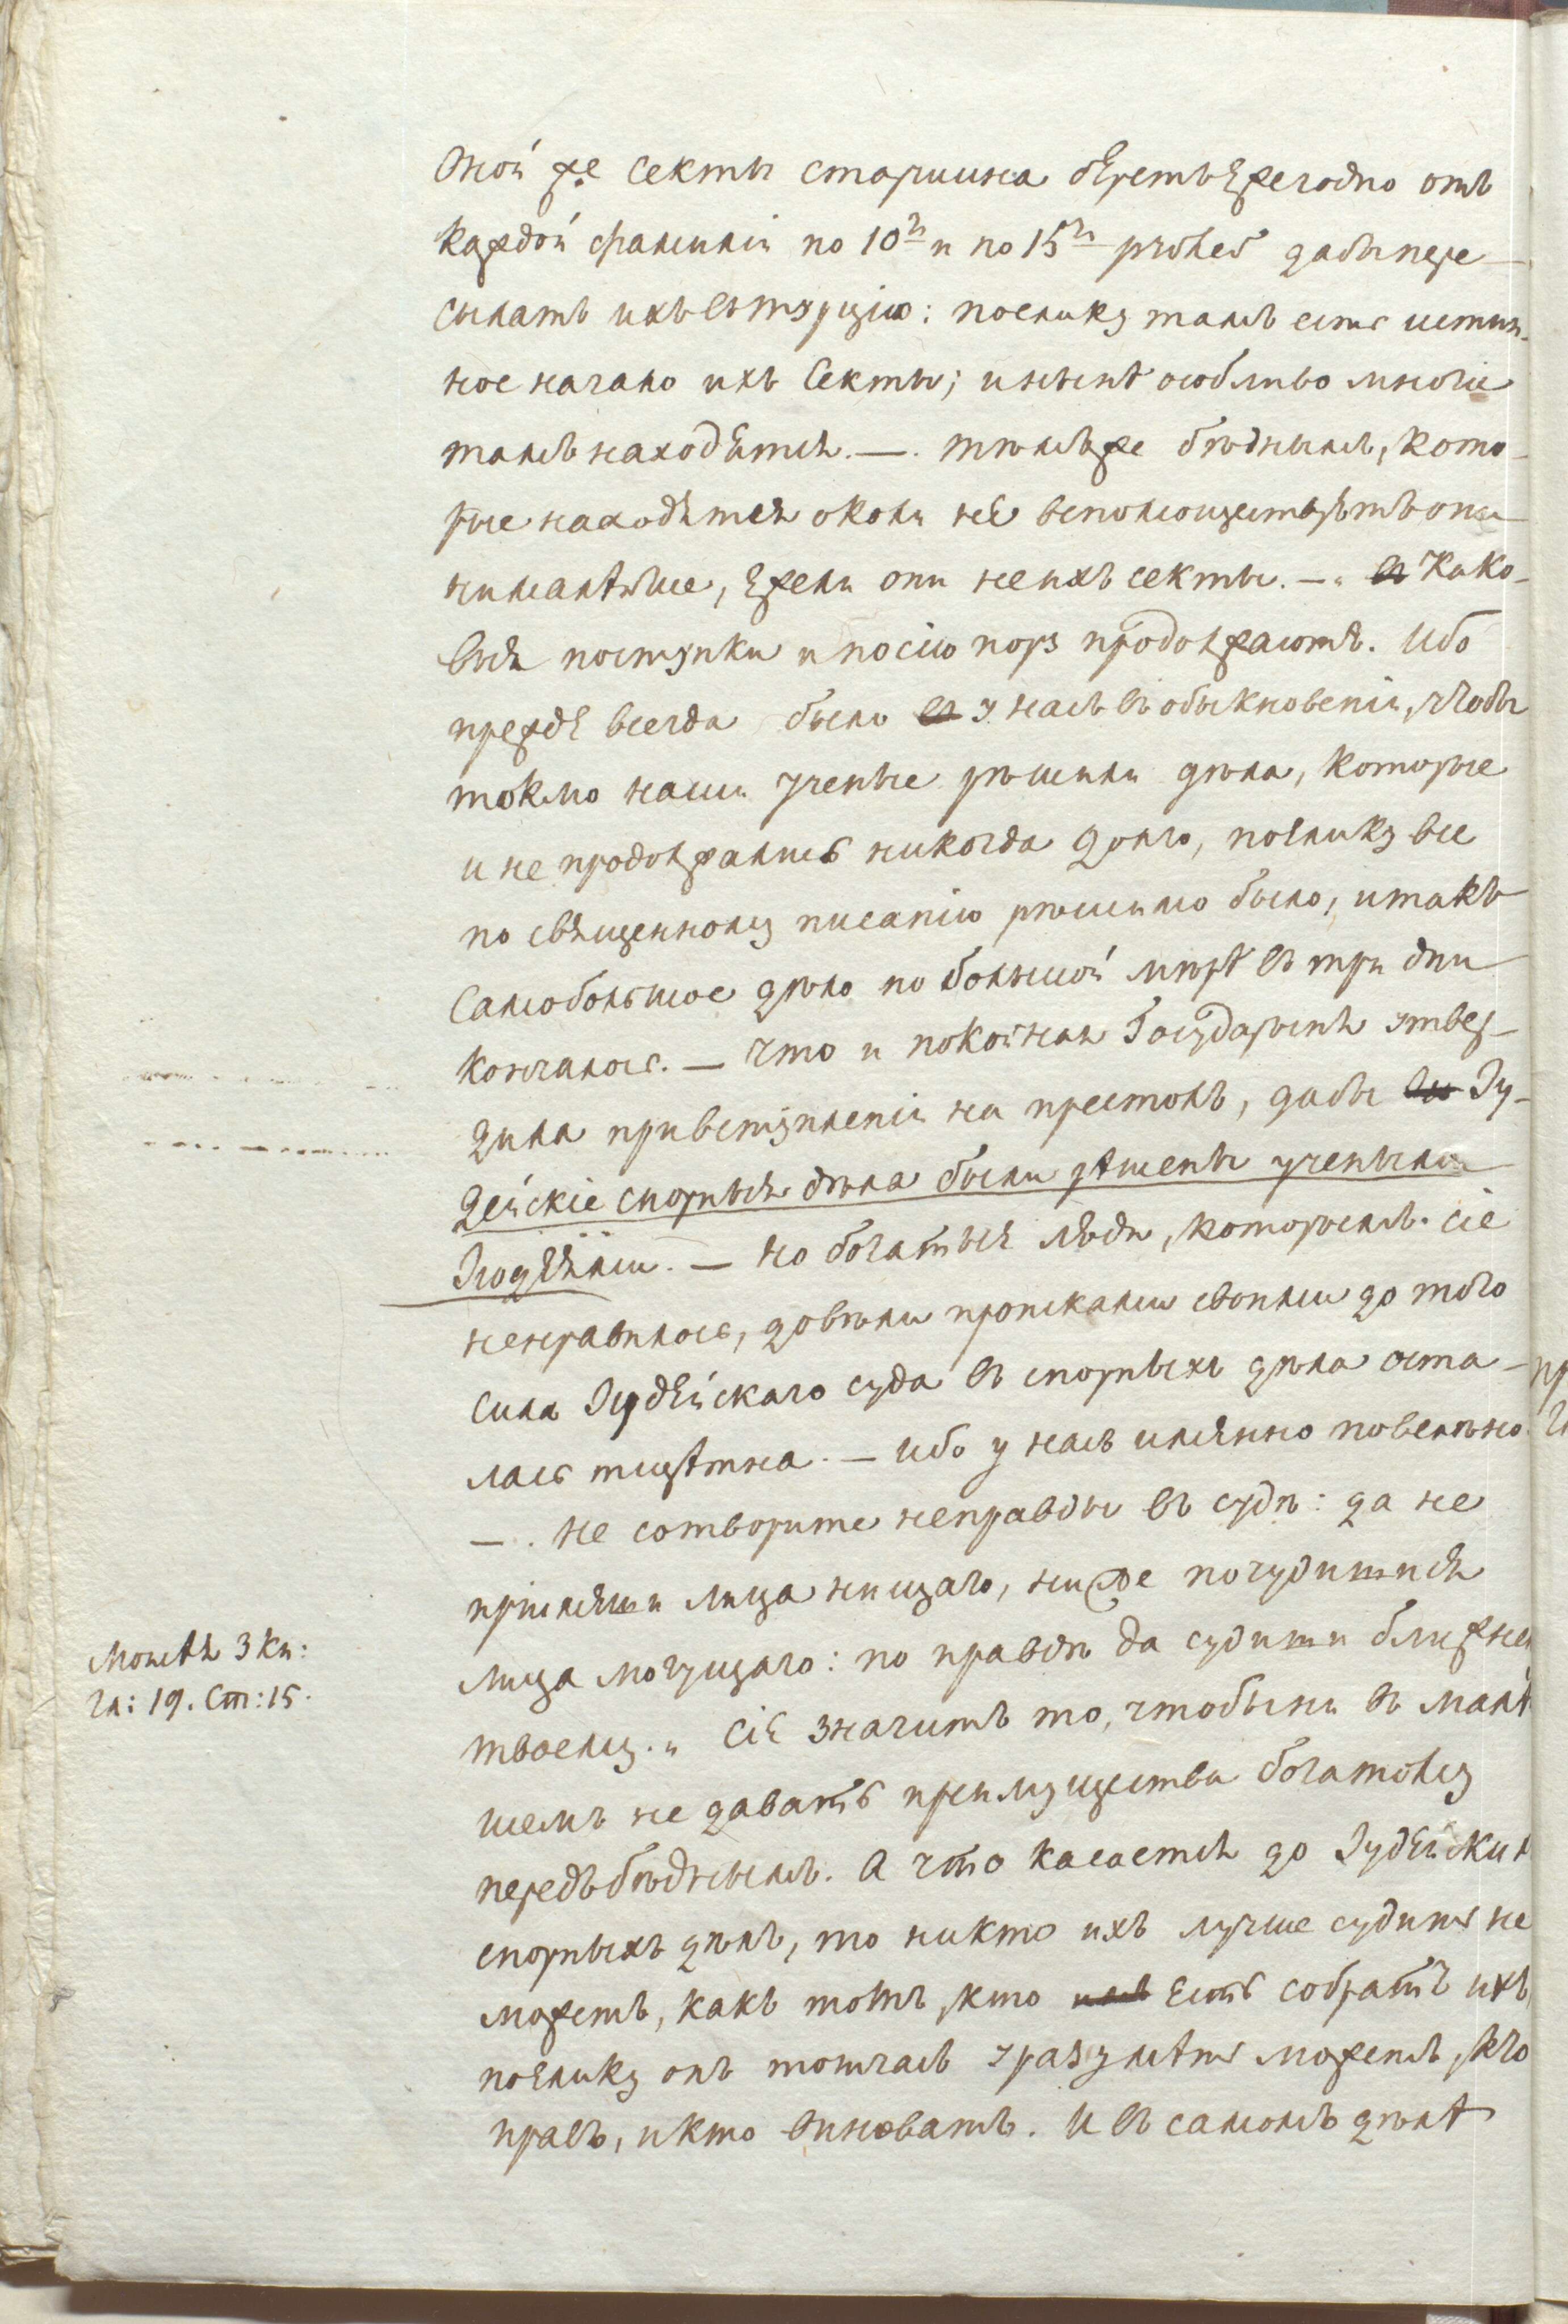 Оной же секты старшина беретъ ежегодно отъ
каждой фамиліи по 10ти и по 15ти рублей дабы пере-
сылать ихъ въ турцію: поелику тамъ есть истин-
ное начало ихъ Секты; и нынѣ особливо многіе
тамъ находятся. —. тѣмъ же бѣднымъ, кото-
рые находятся около нее вспомоществуетъ оны
ни малѣйше, ежели они не ихъ секты. — Како-
выя поступки и по сію пору продолжаютъ. Ибо
прежде всегда было у насъ въ обыкновеніи, чтобы
токмо наши ученые рѣшили дѣла, которые
и не продолжались никогда долго, поелику все
по священному писанію рѣшимо было, и такъ
самобольшое дѣло по большой мѣрѣ въ три дни
кончалось. — Что и покойная Государыня утвер-
дила при вступленіи на престолъ, дабы Іу-
дейскіе спорныя дѣла были рѣшены учеными
Іюдеями. — Но богатыя люди, которымъ сіе
не нравилось, довели происками своими до того
сила Іудейскаго суда въ спорныхъ дѣла оста-
лась тщетна. — ибо у насъ имянно повелѣно
—. не сотворите неправды въ судѣ: да не
пріимеши лица нищаго, ниже почудишися
лица могущаго: по правдѣ да судиши ближнем
твоему. „ Сіе значитъ то, чтобы ни въ малѣ
шемъ не давать преимущества богатому
передъ бѣднымъ. А что касается до Іудейских
спорныхъ дѣлъ, то никто ихъ лучше судить не
можетъ, какъ тотъ, кто есть собратъ ихъ,
поелику онъ тотчасъ уразумѣть можетъ, кто
правъ, и кто виноватъ. И въ самомъ дѣлѣ
Моисѣя 3 кн:
гл: 19. Ст: 15.